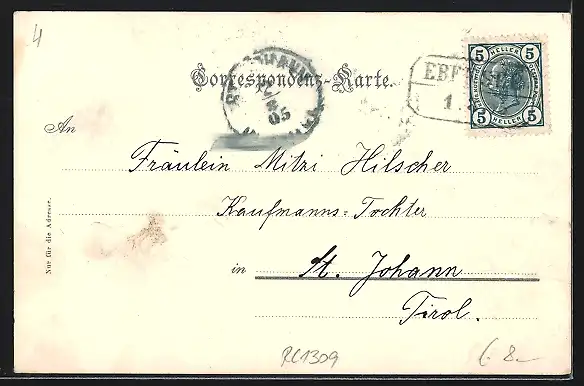 4
5 HELLER 5
EBF
1.
Correspondenz-Karte.
ST. JOHANN
05
An
Fräulein Mitzi Hilscher
Kaufmanns-Tochter
in St. Johann
Tirol.
Nur für die Adresse.
5 HELLER 5
RC1309
8.–